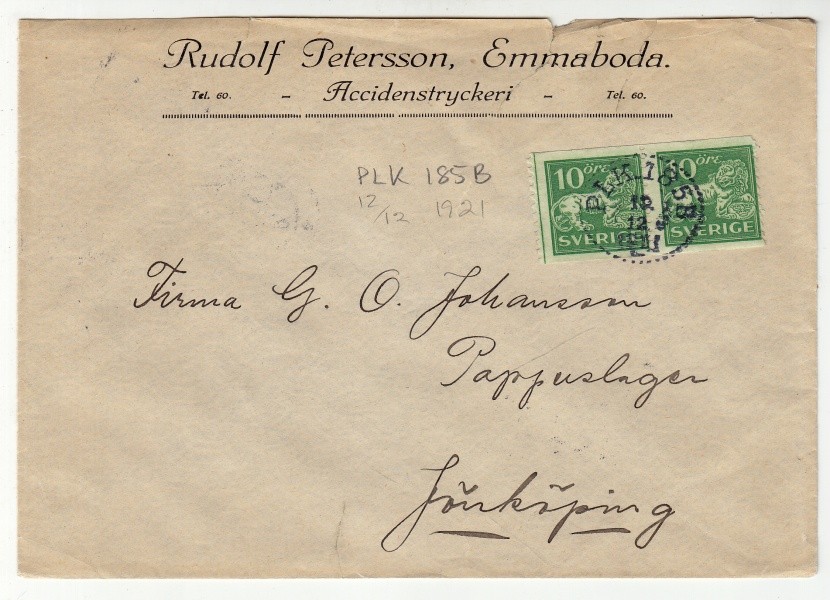 Rudolf Petersson, Emmaboda.
Tel. 60. - Accidenstryckeri - Tel. 60.
PLK 185B
12/12 1921
10 ÖRE
SVERIGE
10 ÖRE
SVERIGE
PLK 185B
12
Firma G. O. Johansson
Pappuslager
Jönköping